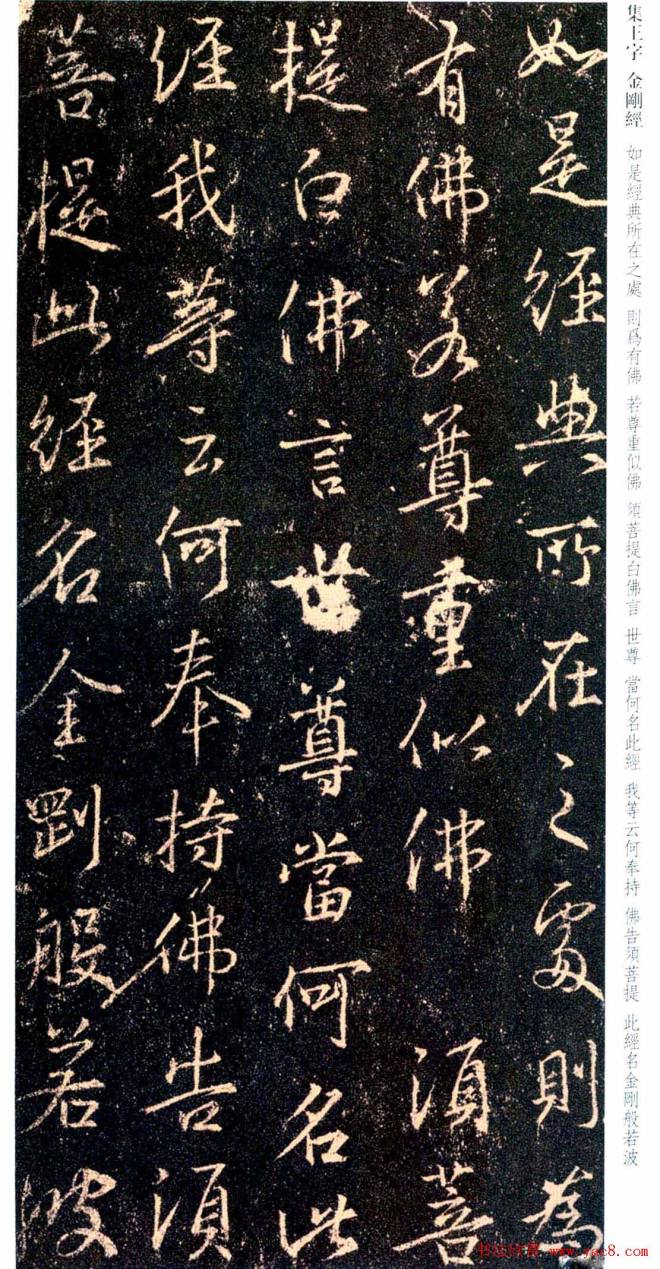 集王字 金剛經 如是經典所在之處 則爲有佛 若尊重似佛 須菩提白佛言 世尊 當何名此經 我等云何奉持 佛告須菩提 此經名金剛般若波
如是經典所在之處則為
有佛若尊重似佛 須菩
提白佛言世尊當何名此
經我等云何奉持佛告須
菩提此經名金剛般若波
书法欣赏 www.yac8.com